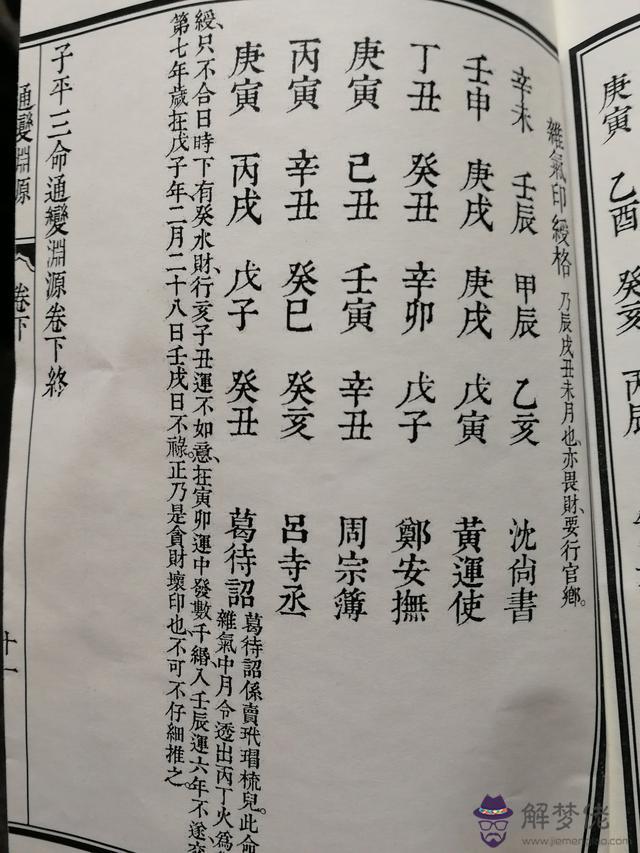 庚寅 乙酉 癸亥 丙辰
雜氣印綬格 乃辰戌丑未月也、亦畏財、要行官鄉。
辛未 壬辰 甲辰 乙亥 沈尙書
壬申 庚戌 庚戌 戊寅 黃運使
丁丑 癸丑 辛卯 戊子 鄭安撫
庚寅 己丑 壬寅 辛丑 周宗簿
丙寅 辛丑 癸巳 癸亥 呂寺丞
庚寅 丙戌 戊子 癸丑 葛待詔
葛待詔係賣玳瑁梳兒。此命
雜氣中月令透出丙丁火爲
綬、只不合日時下有癸水財、行亥子丑運不如意、在寅卯運中發數千緡、入壬辰運六年不遂、交
第七年歲在戊子年二月二十八日壬戌日不祿。正乃是貪財壞印也、不可不仔細推之。
子平三命通變淵源卷下終
通變淵源 卷下 十一
解梦佬
www.jiemenglao.com